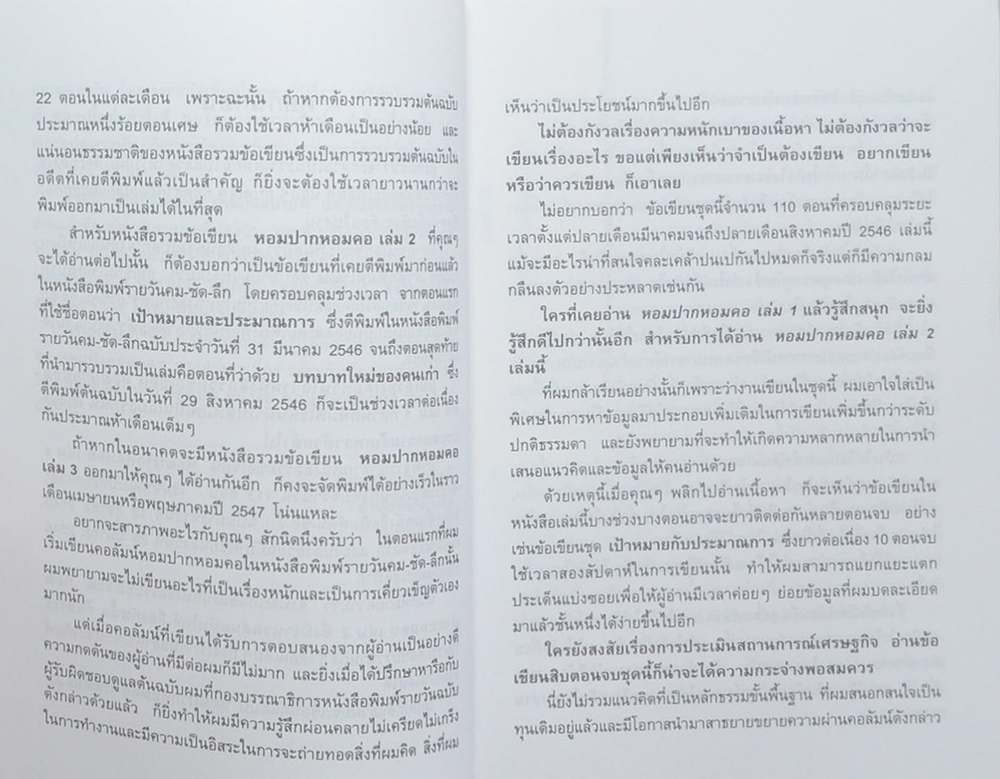 22 ตอนในแต่ละเดือน เพราะฉะนั้น ถ้าหากต้องการรวบรวมต้นฉบับ
ประมาณหนึ่งร้อยตอนเศษ ก็ต้องใช้เวลาห้าเดือนเป็นอย่างน้อย และ
แน่นอนธรรมชาติของหนังสือรวมข้อเขียนซึ่งเป็นการรวบรวมต้นฉบับใน
อดีตที่เคยตีพิมพ์แล้วเป็นสำคัญ ก็ยิ่งจะต้องใช้เวลายาวนานกว่าจะ
พิมพ์ออกมาเป็นเล่มได้ในที่สุด
สำหรับหนังสือรวมข้อเขียน หอมปากหอมคอ เล่ม 2 ที่คุณๆ
จะได้อ่านต่อไปนั้น ก็ต้องบอกว่าเป็นข้อเขียนที่เคยตีพิมพ์มาก่อนแล้ว
ในหนังสือพิมพ์รายวันคม-ชัด-ลึก โดยครอบคลุมช่วงเวลา จากตอนแรก
ที่ใช้ชื่อตอนว่า เป้าหมายและประมาณการ ซึ่งตีพิมพ์ในหนังสือพิมพ์
รายวันคม-ชัด-ลึกฉบับประจำวันที่ 31 มีนาคม 2546 จนถึงตอนสุดท้าย
ที่นำมารวบรวมเป็นเล่มคือตอนที่ว่าด้วย บทบาทใหม่ของคนเก่า ซึ่ง
ตีพิมพ์ต้นฉบับในวันที่ 29 สิงหาคม 2546 ก็จะเป็นช่วงเวลาต่อเนื่อง
กันประมาณห้าเดือนเต็มๆ
ถ้าหากในอนาคตจะมีหนังสือรวมข้อเขียน หอมปากหอมคอ
เล่ม 3 ออกมาให้คุณๆ ได้อ่านกันอีก ก็คงจะจัดพิมพ์ได้อย่างเร็วในราว
เดือนเมษายนหรือพฤษภาคมปี 2547 โน่นแหละ
อยากจะสารภาพอะไรกับคุณๆ สักนิดนึงครับว่า ในตอนแรกที่ผม
เริ่มเขียนคอลัมน์หอมปากหอมคอในหนังสือพิมพ์รายวันคม-ชัด-ลึกนั้น
ผมพยายามจะไม่เขียนอะไรที่เป็นเรื่องหนักและเป็นการเคี่ยวเข็ญตัวเอง
มากนัก
แต่เมื่อคอลัมน์ที่เขียนได้รับการตอบสนองจากผู้อ่านเป็นอย่างดี
ความกดดันของผู้อ่านที่มีต่อผมก็มีไม่มาก และยิ่งเมื่อได้ปรึกษาหารือกับ
ผู้รับผิดชอบดูแลต้นฉบับผมที่กองบรรณาธิการหนังสือพิมพ์รายวันฉบับ
ดังกล่าวด้วยแล้ว ก็ยิ่งทำให้ผมมีความรู้สึกผ่อนคลายไม่เครียดไม่เกร็ง
ในการทำงานและมีความเป็นอิสระในการจะถ่ายทอดสิ่งที่ผมคิด สิ่งที่ผม
เห็นว่าเป็นประโยชน์มากขึ้นไปอีก
ไม่ต้องกังวลเรื่องความหนักเบาของเนื้อหา ไม่ต้องกังวลว่าจะ
เขียนเรื่องอะไร ขอแต่เพียงเห็นว่าจำเป็นต้องเขียน อยากเขียน
หรือว่าควรเขียน ก็เอาเลย
ไม่อยากบอกว่า ข้อเขียนชุดนี้จำนวน 110 ตอนที่ครอบคลุมระยะ
เวลาตั้งแต่ปลายเดือนมีนาคมจนถึงปลายเดือนสิงหาคมปี 2546 เล่มนี้
แม้จะมีอะไรน่าที่สนใจคละเคล้าปนเปกันไปหมดก็จริงแต่ก็มีความกลม
กลืนลงตัวอย่างประหลาดเช่นกัน
ใครที่เคยอ่าน หอมปากหอมคอ เล่ม 1 แล้วรู้สึกสนุก จะยิ่ง
รู้สึกดีไปกว่านั้นอีก สำหรับการได้อ่าน หอมปากหอมคอ เล่ม 2
เล่มนี้
ที่ผมกล้าเรียนอย่างนั้นก็เพราะว่างานเขียนในชุดนี้ ผมเอาใจใส่เป็น
พิเศษในการหาข้อมูลมาประกอบเพิ่มเติมในการเขียนเพิ่มขึ้นกว่าระดับ
ปกติธรรมดา และยังพยายามที่จะทำให้เกิดความหลากหลายในการนำ
เสนอแนวคิดและข้อมูลให้คนอ่านด้วย
ด้วยเหตุนี้เมื่อคุณๆ พลิกไปอ่านเนื้อหา ก็จะเห็นว่าข้อเขียนใน
หนังสือเล่มนี้บางช่วงบางตอนอาจจะยาวติดต่อกันหลายตอนจบ อย่าง
เช่นข้อเขียนชุด เป้าหมายกับประมาณการ ซึ่งยาวต่อเนื่อง 10 ตอนจบ
ใช้เวลาสองสัปดาห์ในการเขียนนั้น ทำให้ผมสามารถแยกแยะแตก
ประเด็นแบ่งซอยเพื่อให้ผู้อ่านมีเวลาค่อยๆ ย่อยข้อมูลที่ผมบดละเอียด
มาแล้วชั้นหนึ่งได้ง่ายขึ้นไปอีก
ใครยังสงสัยเรื่องการประเมินสถานการณ์เศรษฐกิจ อ่านข้อ
เขียนสิบตอนจบชุดนี้ก็น่าจะได้ความกระจ่างพอสมควร
นี่ยังไม่รวมแนวคิดที่เป็นหลักธรรมขั้นพื้นฐาน ที่ผมสนอกสนใจเป็น
ทุนเดิมอยู่แล้วและมีโอกาสนำมาสาธยายขยายความผ่านคอลัมน์ดังกล่าว